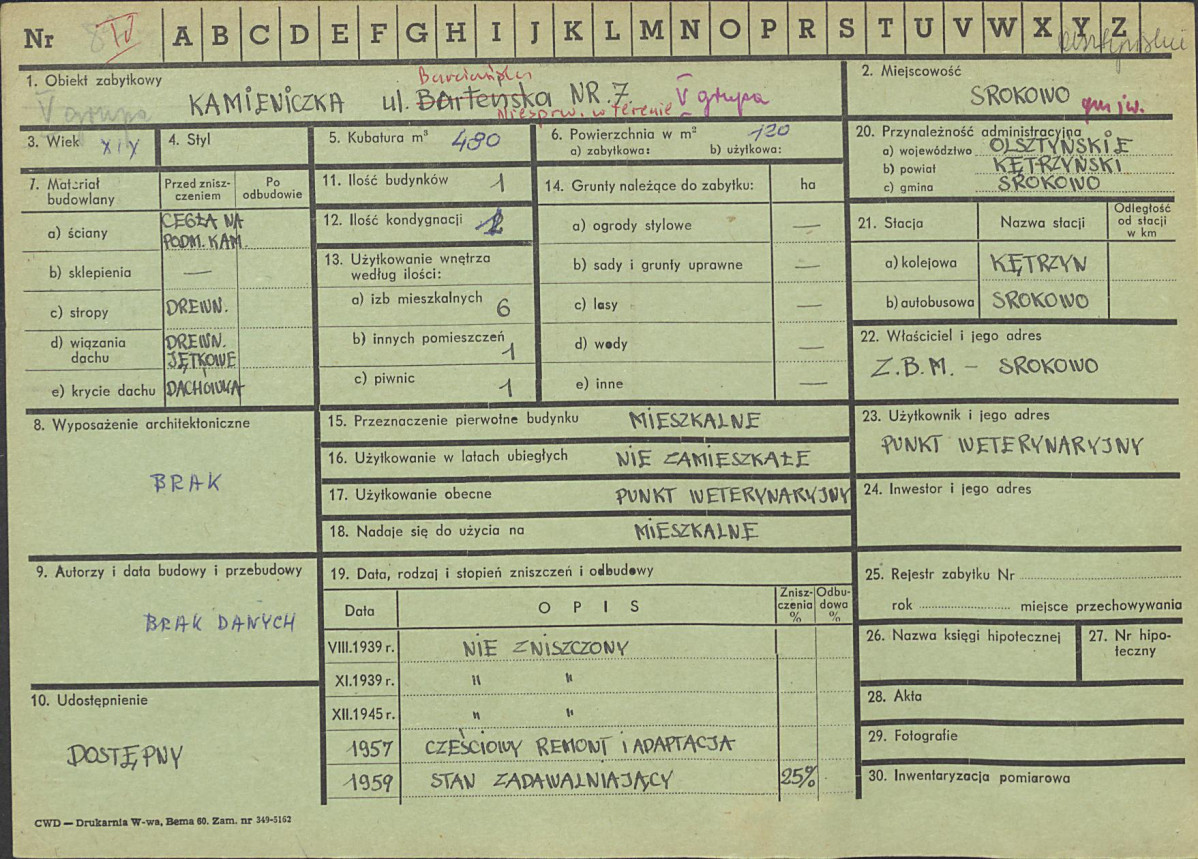 Nr IV A B C D E F G H I J K L M N O P R S T U V W X Y Z
1. Obiekt zabytkowy
V grupa
KAMIENICZKA ul. Barteńska NR 7
Barciańska
Niesprw. w terenie V grupa
2. Miejscowość
SROKOWO gm jw.
3. Wiek XIX
4. Styl
5. Kubatura m³ 480
6. Powierzchnia w m² 120
a) zabytkowa: b) użytkowa:
20. Przynależność administracyjna
a) województwo OLSZTYŃSKIE
b) powiat KĘTRZYŃSKI
c) gmina SROKOWO
7. Materiał budowlany
Przed znisz-
czeniem
Po
odbudowie
a) ściany CEGŁA NA
PODM. KAM.
b) sklepienia —
c) stropy DREWN.
d) wiązania
dachu
DREWN.
JĘTKOWE
e) krycie dachu DACHÓWKA
11. Ilość budynków 1
12. Ilość kondygnacji 2
13. Użytkowanie wnętrza
według ilości:
a) izb mieszkalnych 6
b) innych pomieszczeń 1
c) piwnic 1
14. Grunty należące do zabytku: ha
a) ogrody stylowe —
b) sady i grunty uprawne —
c) lasy —
d) wody —
e) inne —
21. Stacja Nazwa stacji
Odległość
od stacji
w km
a) kolejowa KĘTRZYN
b) autobusowa SROKOWO
22. Właściciel i jego adres
Z.B.M. - SROKOWO
8. Wyposażenie architektoniczne
BRAK
15. Przeznaczenie pierwotne budynku MIESZKALNE
16. Użytkowanie w latach ubiegłych NIE ZAMIESZKAŁE
17. Użytkowanie obecne PUNKT WETERYNARYJNY
18. Nadaje się do użycia na MIESZKALNE
23. Użytkownik i jego adres
PUNKT WETERYNARYJNY
24. Inwestor i jego adres
9. Autorzy i data budowy i przebudowy
BRAK DANYCH
19. Data, rodzaj i stopień zniszczeń i odbudowy
Data OPIS
Znisz-
czenia
%
Odbu-
dowa
%
VIII.1939 r. NIE ZNISZCZONY
XI.1939 r. " "
XII.1945 r. " "
1957 CZĘŚCIOWY REMONT I ADAPTACJA
1959 STAN ZADAWALNIAJĄCY 25%
25. Rejestr zabytku Nr
rok miejsce przechowywania
26. Nazwa księgi hipotecznej
27. Nr hipo-
teczny
10. Udostępnienie
DOSTĘPNY
28. Akta
29. Fotografie
30. Inwentaryzacja pomiarowa
CWD — Drukarnia W-wa, Bema 60. Zam. nr 349-5162